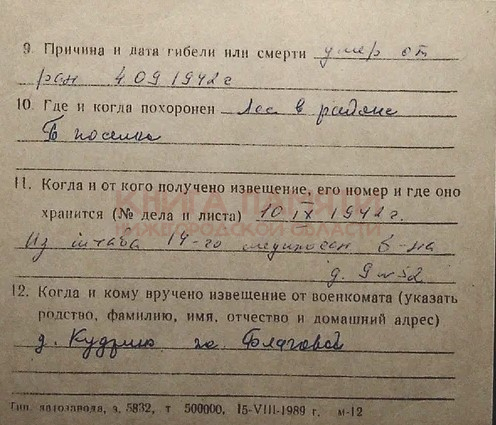 9. Причина и дата гибели или смерти умер от
ран 4 09 1942 г
10. Где и когда похоронен Лес в районе
поселка
11. Когда и от кого получено извещение, его номер и где оно
хранится (№ дела и листа) 10 IX 1942 г.
КНИГА ПАМЯТИ
НИЖЕГОРОДСКОЙ ОБЛАСТИ
Из штаба 14-го медикосан б-на
д. 9 л 52
12. Когда и кому вручено извещение от военкомата (указать
родство, фамилию, имя, отчество и домашний адрес)
д. Кудрино
Тип. автозавода, з. 5832, т 500000, 15-VIII-1989 г. м-12